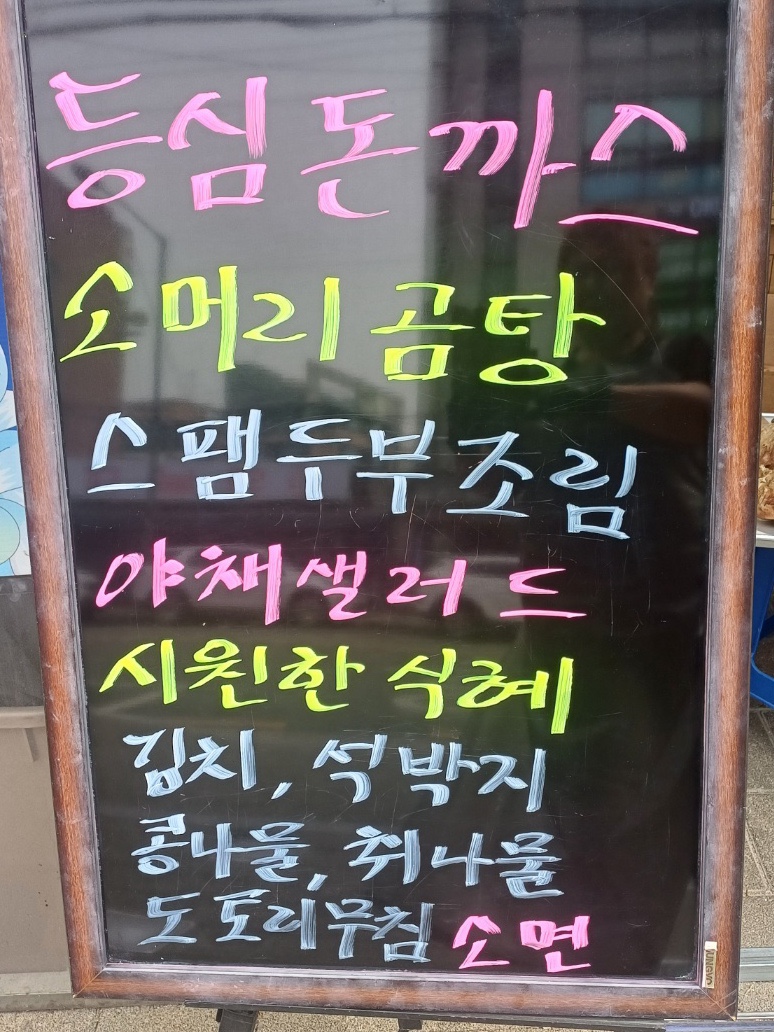 등심돈까스
소머리곰탕
스팸두부조림
야채샐러드
시원한 식혜
김치, 석박지
콩나물, 취나물
도토리무침 소면